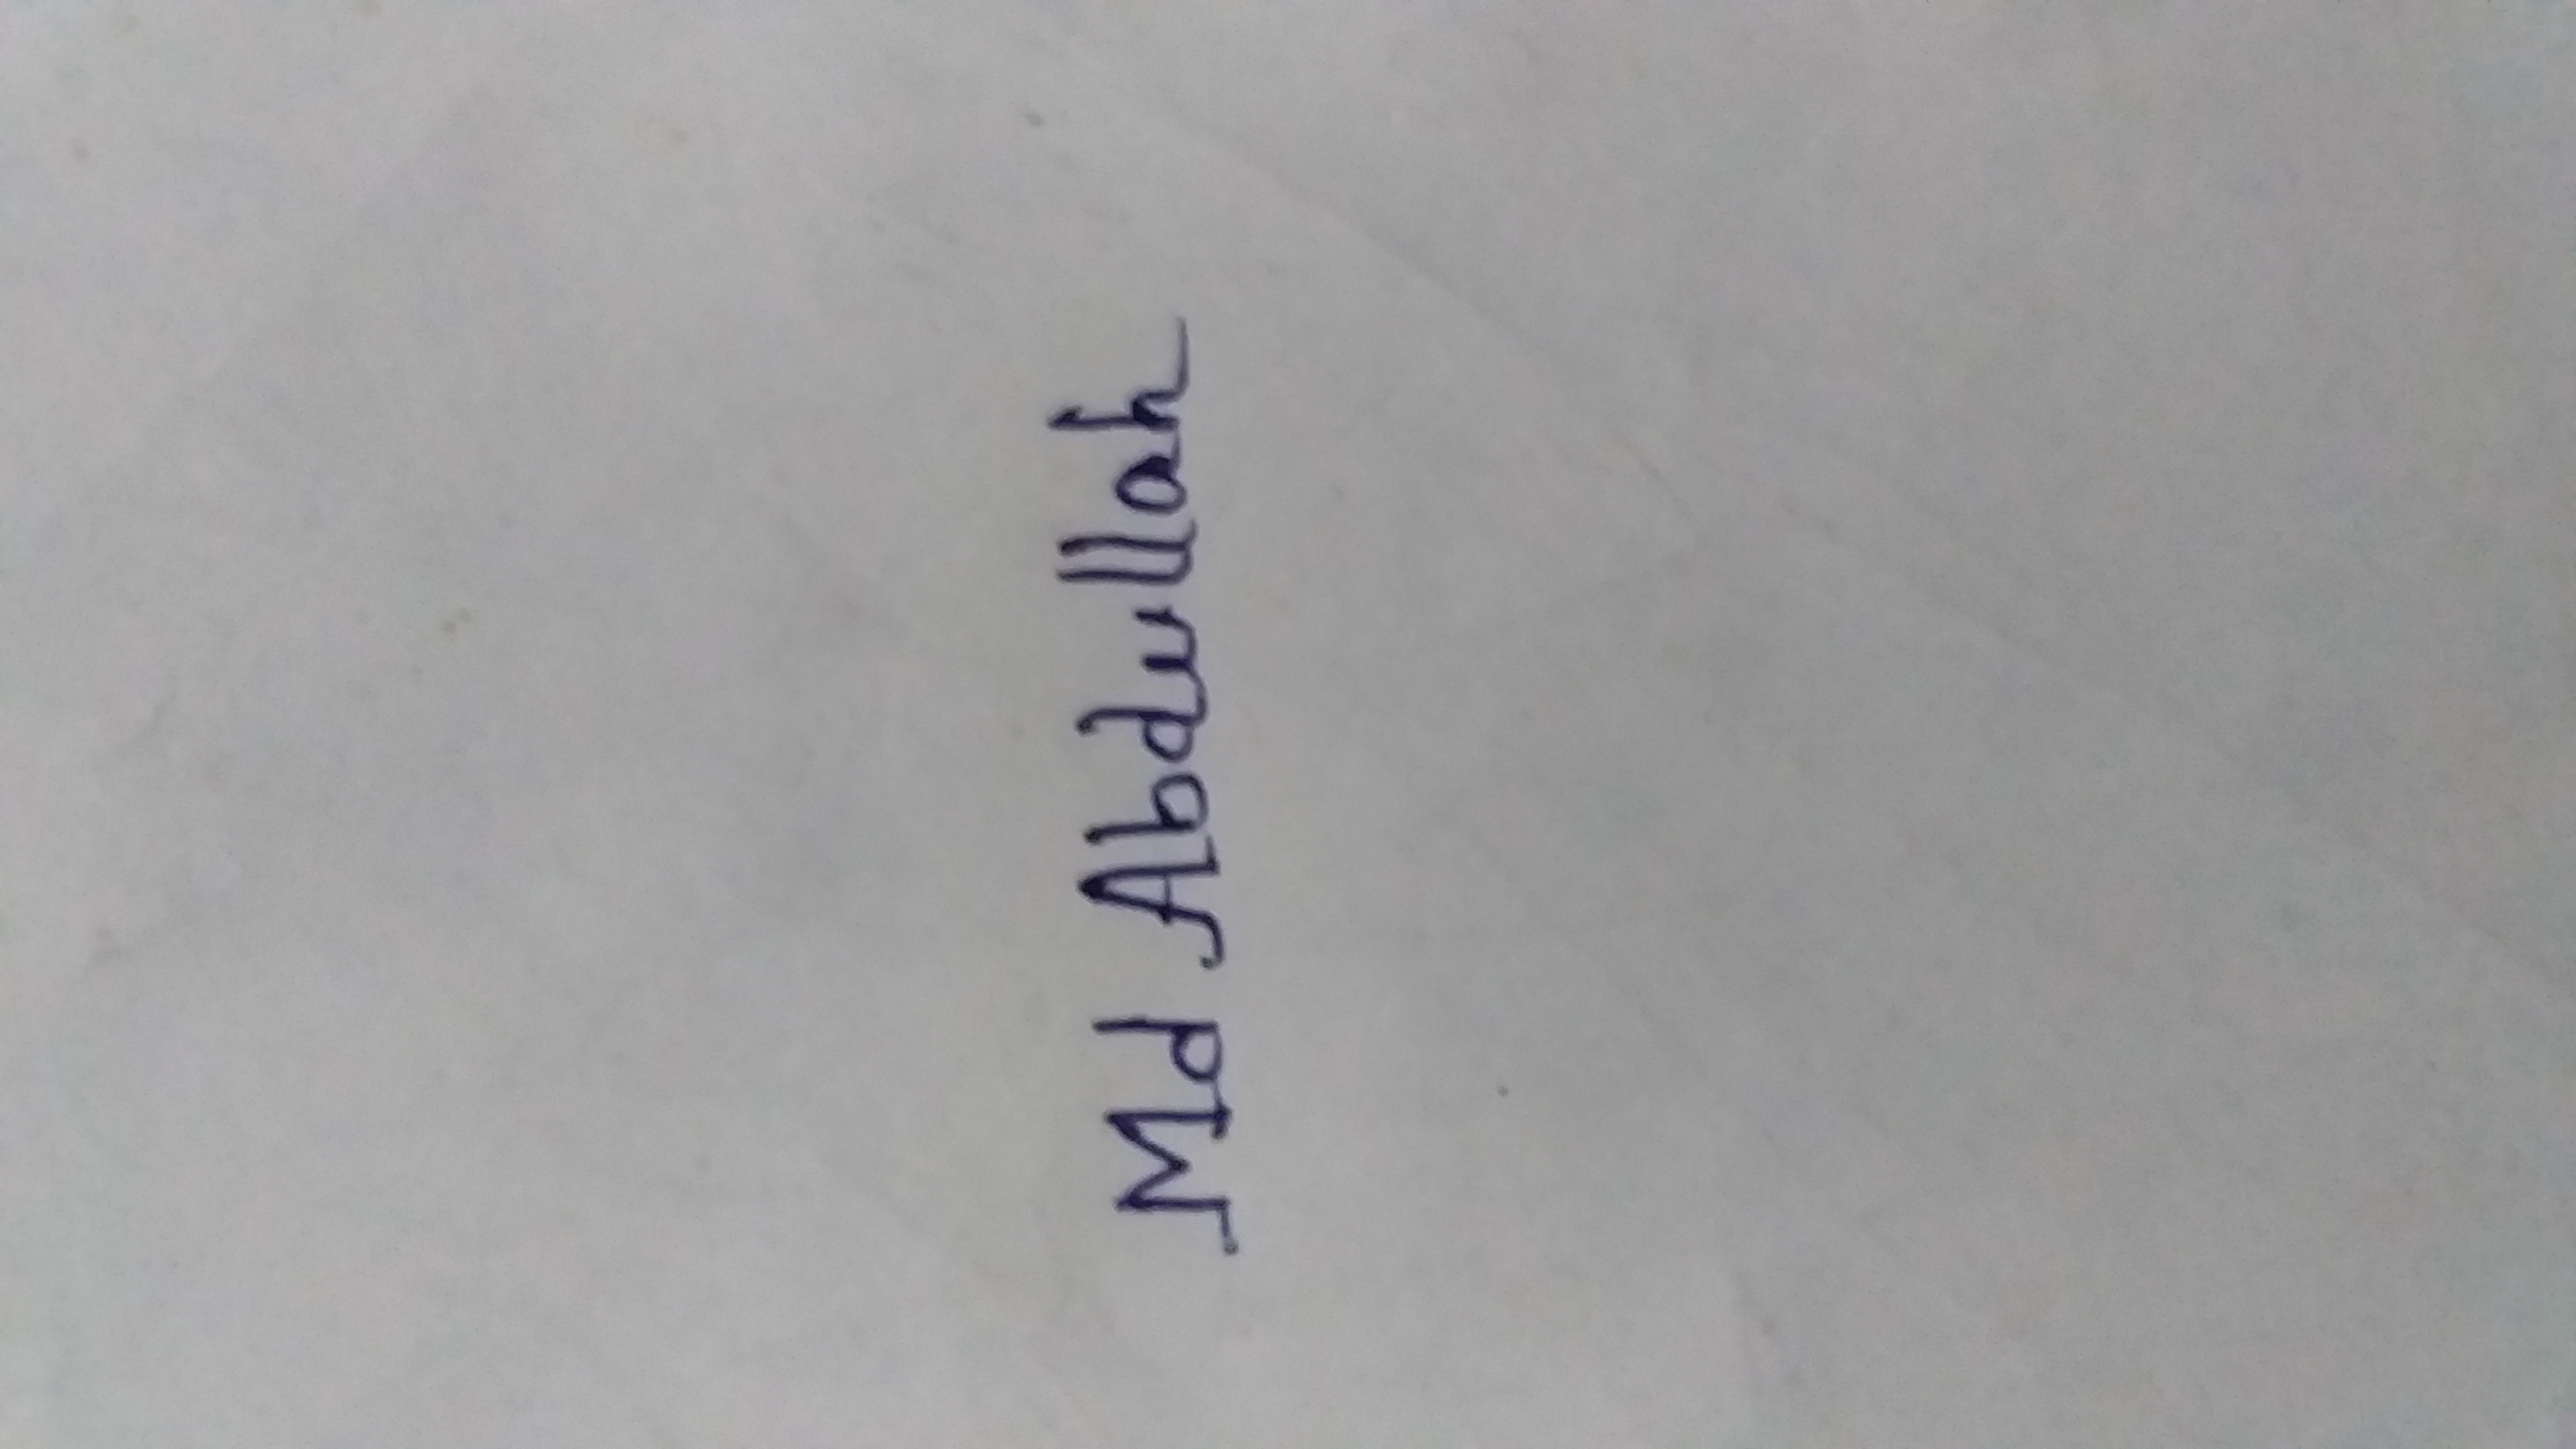 Md Abdullah